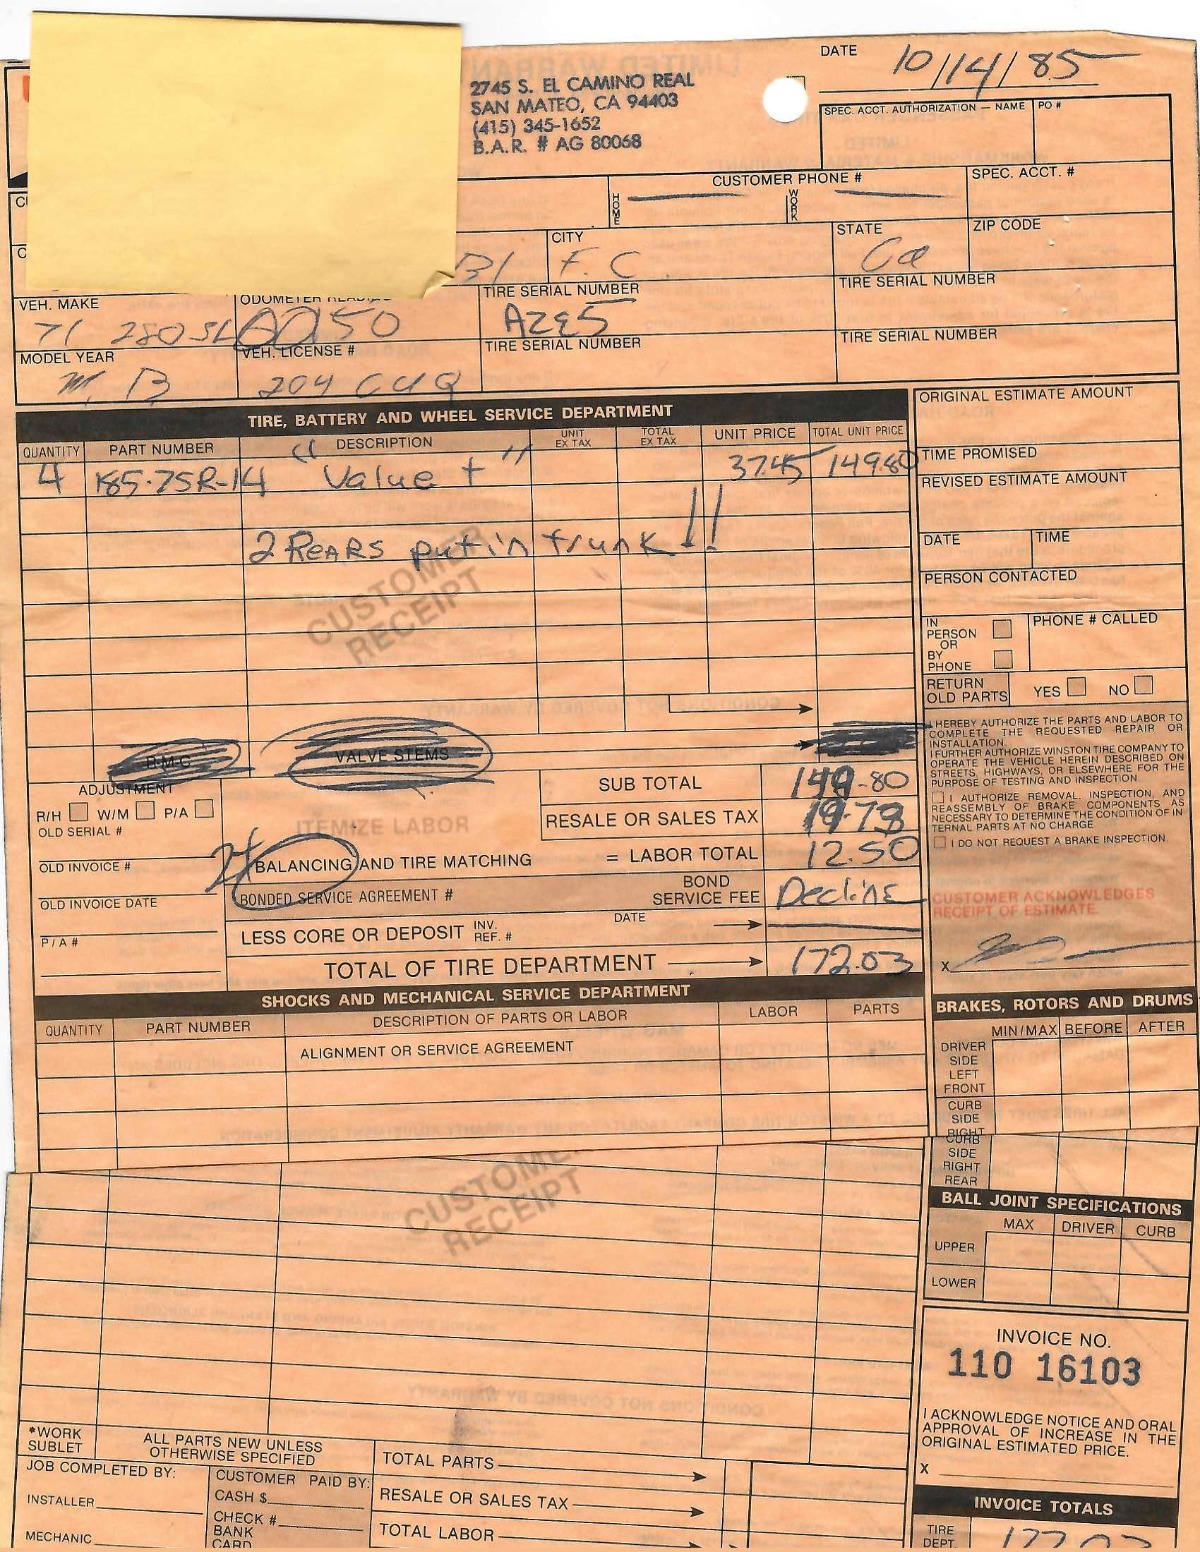 DATE 10/14/85
2745 S. EL CAMINO REAL
SAN MATEO, CA 94403
(415) 345-1652
B.A.R. # AG 80068
SPEC. ACCT. AUTHORIZATION — NAME PO #
CUSTOMER PHONE # SPEC. ACCT. #
HOME WORK
CITY STATE ZIP CODE
Bl F. C Ca
VEH. MAKE ODOMETER READING TIRE SERIAL NUMBER TIRE SERIAL NUMBER
71 280SL 00150 AZE5
MODEL YEAR VEH. LICENSE # TIRE SERIAL NUMBER TIRE SERIAL NUMBER
M. B 204 CUQ
TIRE, BATTERY AND WHEEL SERVICE DEPARTMENT
QUANTITY PART NUMBER DESCRIPTION UNIT EX TAX TOTAL EX TAX UNIT PRICE TOTAL UNIT PRICE
4 185-75R-14 "Value +" 37.45 149.80
2 Rears put in trunk !!
CUSTOMER
RECEIPT
P.M.C. VALVE STEMS
ADJUSTMENT
R/H W/M P/A
OLD SERIAL #
OLD INVOICE #
OLD INVOICE DATE
P/A #
SUB TOTAL 149.80
RESALE OR SALES TAX
ITEMIZE LABOR
BALANCING AND TIRE MATCHING = LABOR TOTAL 12.50
BONDED SERVICE AGREEMENT # BOND SERVICE FEE Decline
LESS CORE OR DEPOSIT INV. REF. # DATE
TOTAL OF TIRE DEPARTMENT 172.03
ORIGINAL ESTIMATE AMOUNT
TIME PROMISED
REVISED ESTIMATE AMOUNT
DATE TIME
PERSON CONTACTED
IN PERSON OR BY PHONE
PHONE # CALLED
RETURN OLD PARTS YES NO
I HEREBY AUTHORIZE THE PARTS AND LABOR TO
COMPLETE THE REQUESTED REPAIR OR
INSTALLATION.
I FURTHER AUTHORIZE WINSTON TIRE COMPANY TO
OPERATE THE VEHICLE HEREIN DESCRIBED ON
STREETS, HIGHWAYS, OR ELSEWHERE FOR THE
PURPOSE OF TESTING AND INSPECTION.
I AUTHORIZE REMOVAL, INSPECTION, AND
REASSEMBLY OF BRAKE COMPONENTS AS
NECESSARY TO DETERMINE THE CONDITION OF IN
TERNAL PARTS AT NO CHARGE
I DO NOT REQUEST A BRAKE INSPECTION.
CUSTOMER ACKNOWLEDGES
RECEIPT OF ESTIMATE.
X
SHOCKS AND MECHANICAL SERVICE DEPARTMENT
QUANTITY PART NUMBER DESCRIPTION OF PARTS OR LABOR LABOR PARTS
ALIGNMENT OR SERVICE AGREEMENT
BRAKES, ROTORS AND DRUMS
MIN/MAX BEFORE AFTER
DRIVER SIDE LEFT FRONT
CURB SIDE RIGHT
CURB SIDE RIGHT REAR
BALL JOINT SPECIFICATIONS
MAX DRIVER CURB
UPPER
LOWER
CUSTOMER
RECEIPT
INVOICE NO.
110 16103
I ACKNOWLEDGE NOTICE AND ORAL
APPROVAL OF INCREASE IN THE
ORIGINAL ESTIMATED PRICE.
X
*WORK SUBLET ALL PARTS NEW UNLESS OTHERWISE SPECIFIED
JOB COMPLETED BY:
INSTALLER
MECHANIC
CUSTOMER PAID BY:
CASH $
CHECK #
BANK
CARD
TOTAL PARTS
RESALE OR SALES TAX
TOTAL LABOR
INVOICE TOTALS
TIRE DEPT. 172.03